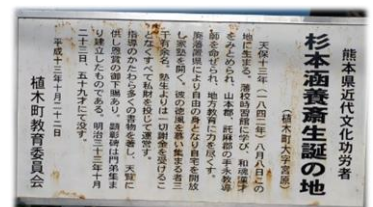 熊本県近代文化功労者
杉本涵養斎生誕の地
(植木町大字宮原)
天保十三年(一八四二年)八月八日この
地に生まる。藩校時習館に学び、和魂漢才
をみとめられ、山本郡、託麻郡の手永教導
師を命ぜられ、地方教育に力を尽くす。
廃藩置県により自由の身となり自宅を開放
し家塾を開く。彼の徳風を慕い集まる者三
千有余名。塾生よりは一切謝金を受けるこ
となくすべて私財を投じて運営す。
指導のかたわら多くの書物を著し、天覧に
供し恩賞の御下賜あり。顕彰碑は門弟集ま
り建立したものである。明治三十三年十月
二十三日、五十九才にて没す。
平成十三年十月二十二日
植木町教育委員会